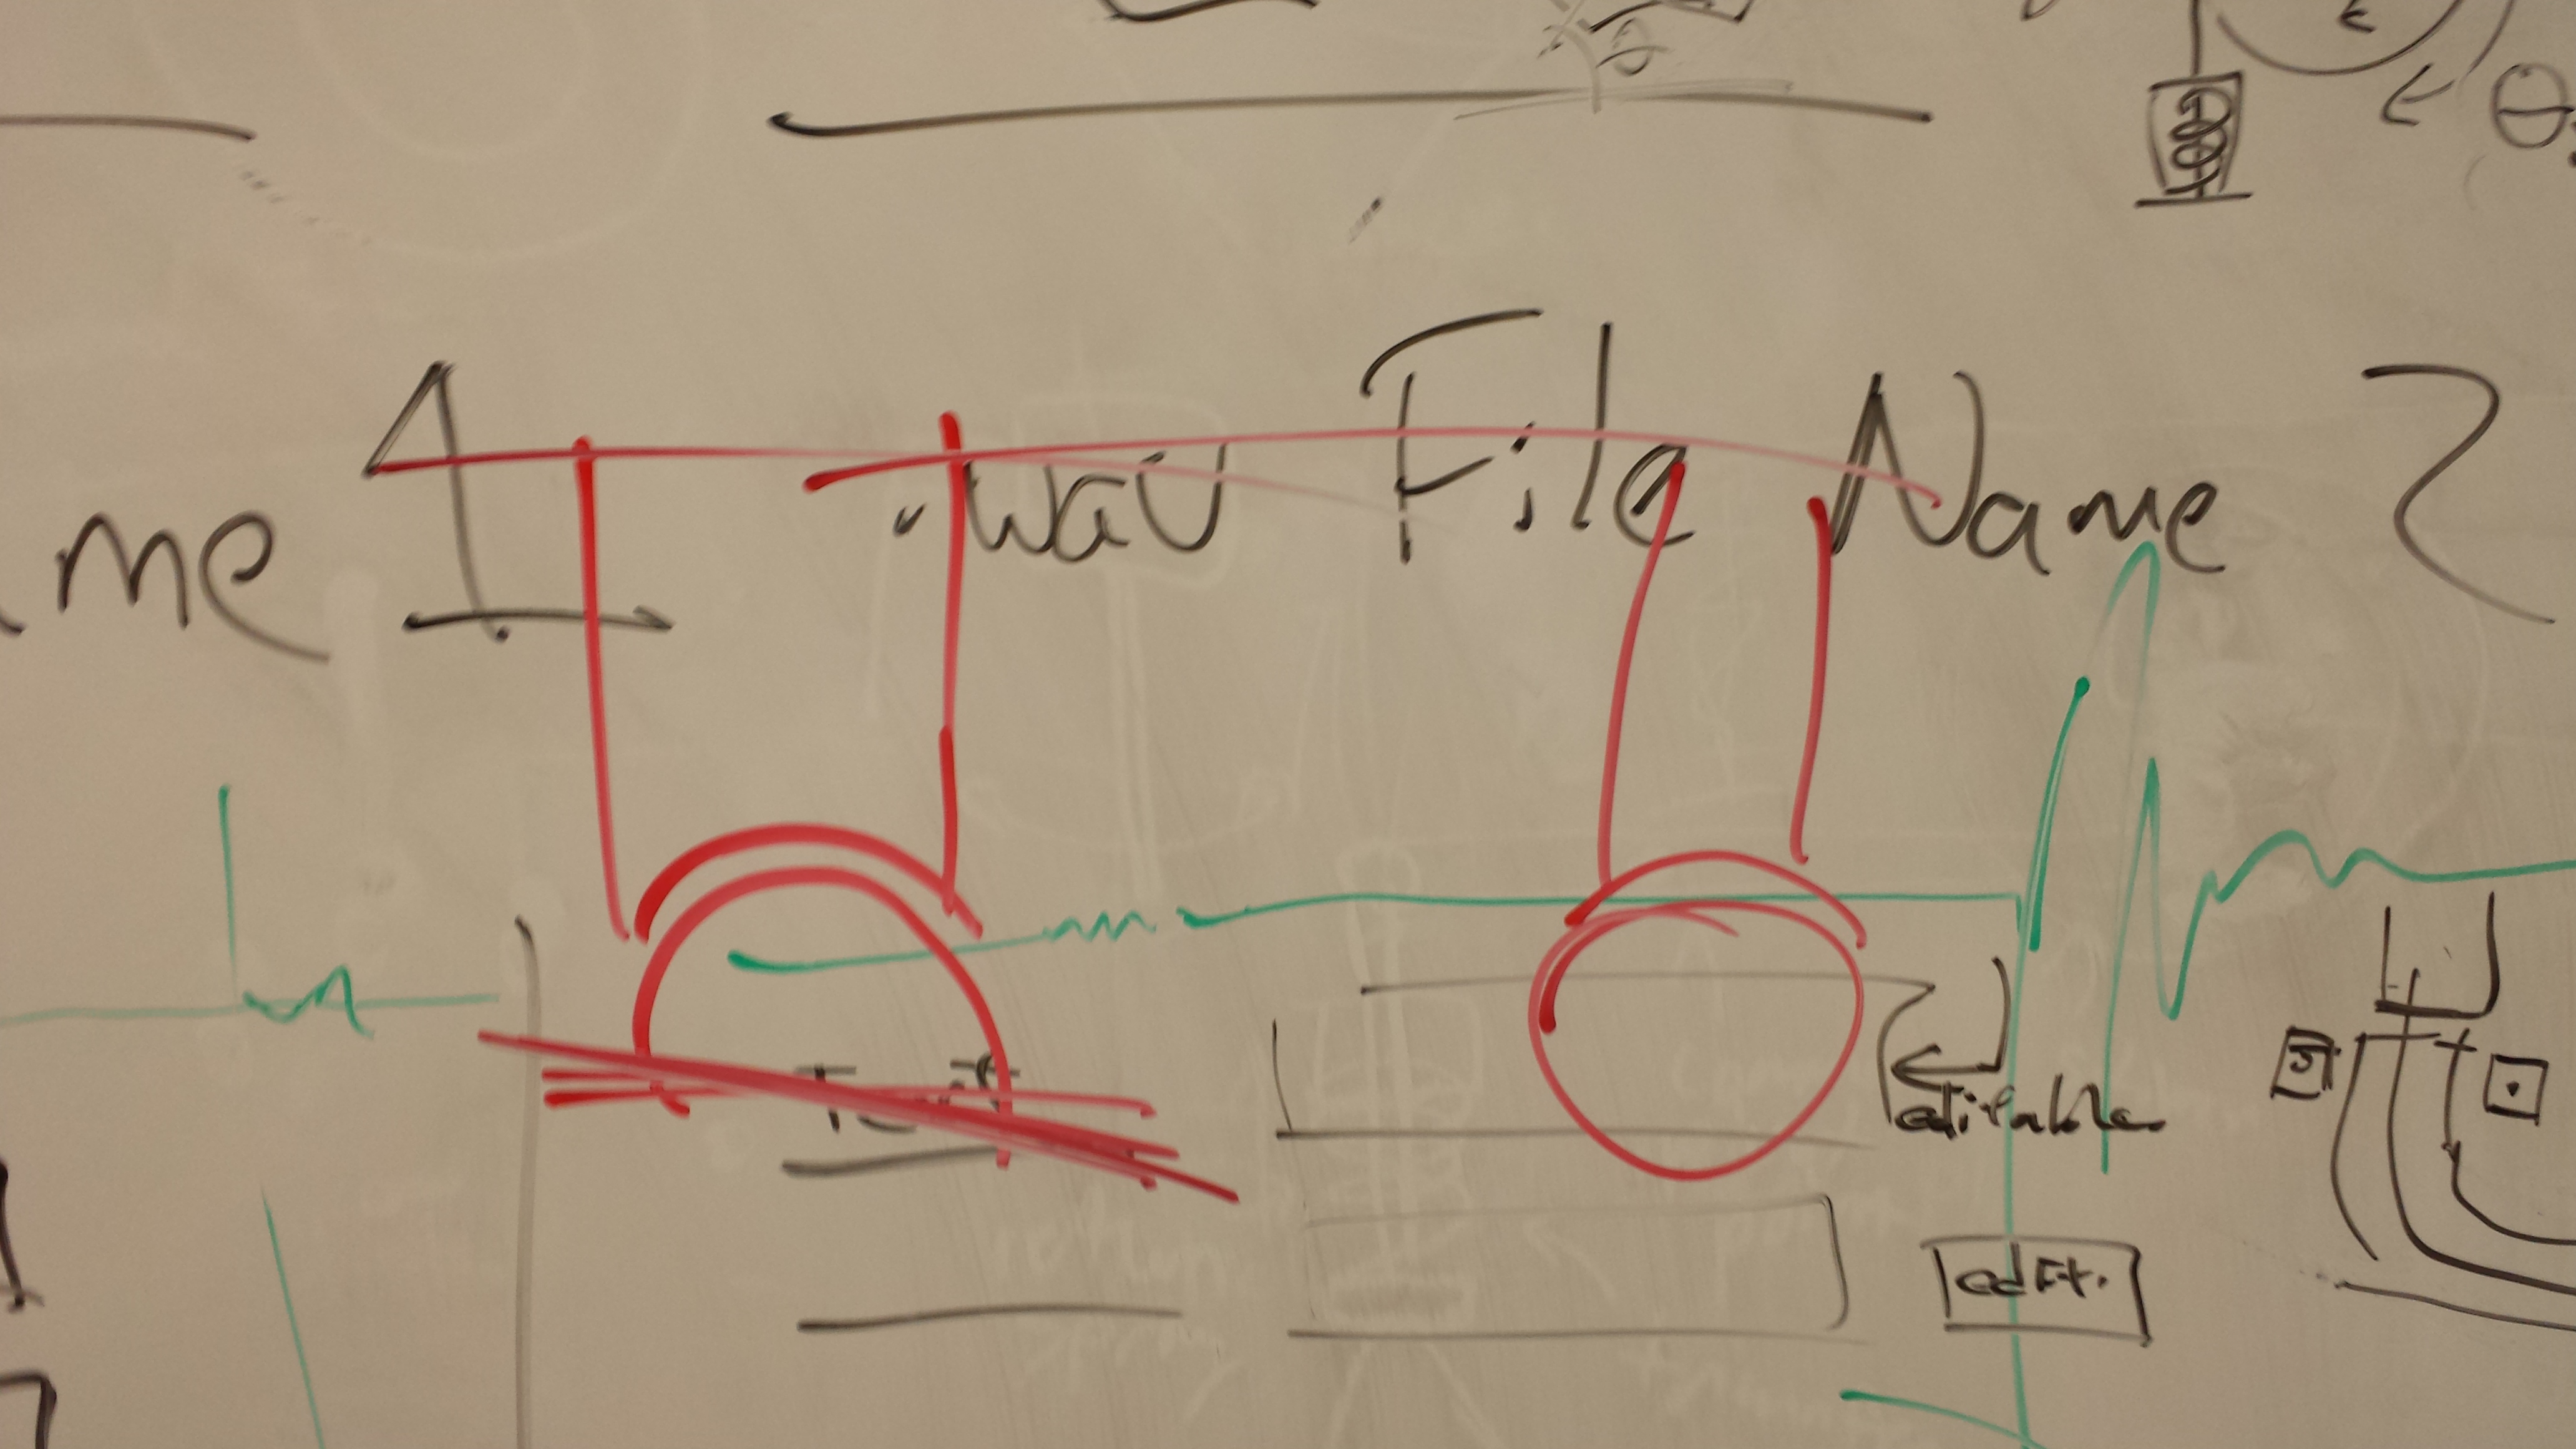 me 1 .wav File Name 2
Text
editable
edit.